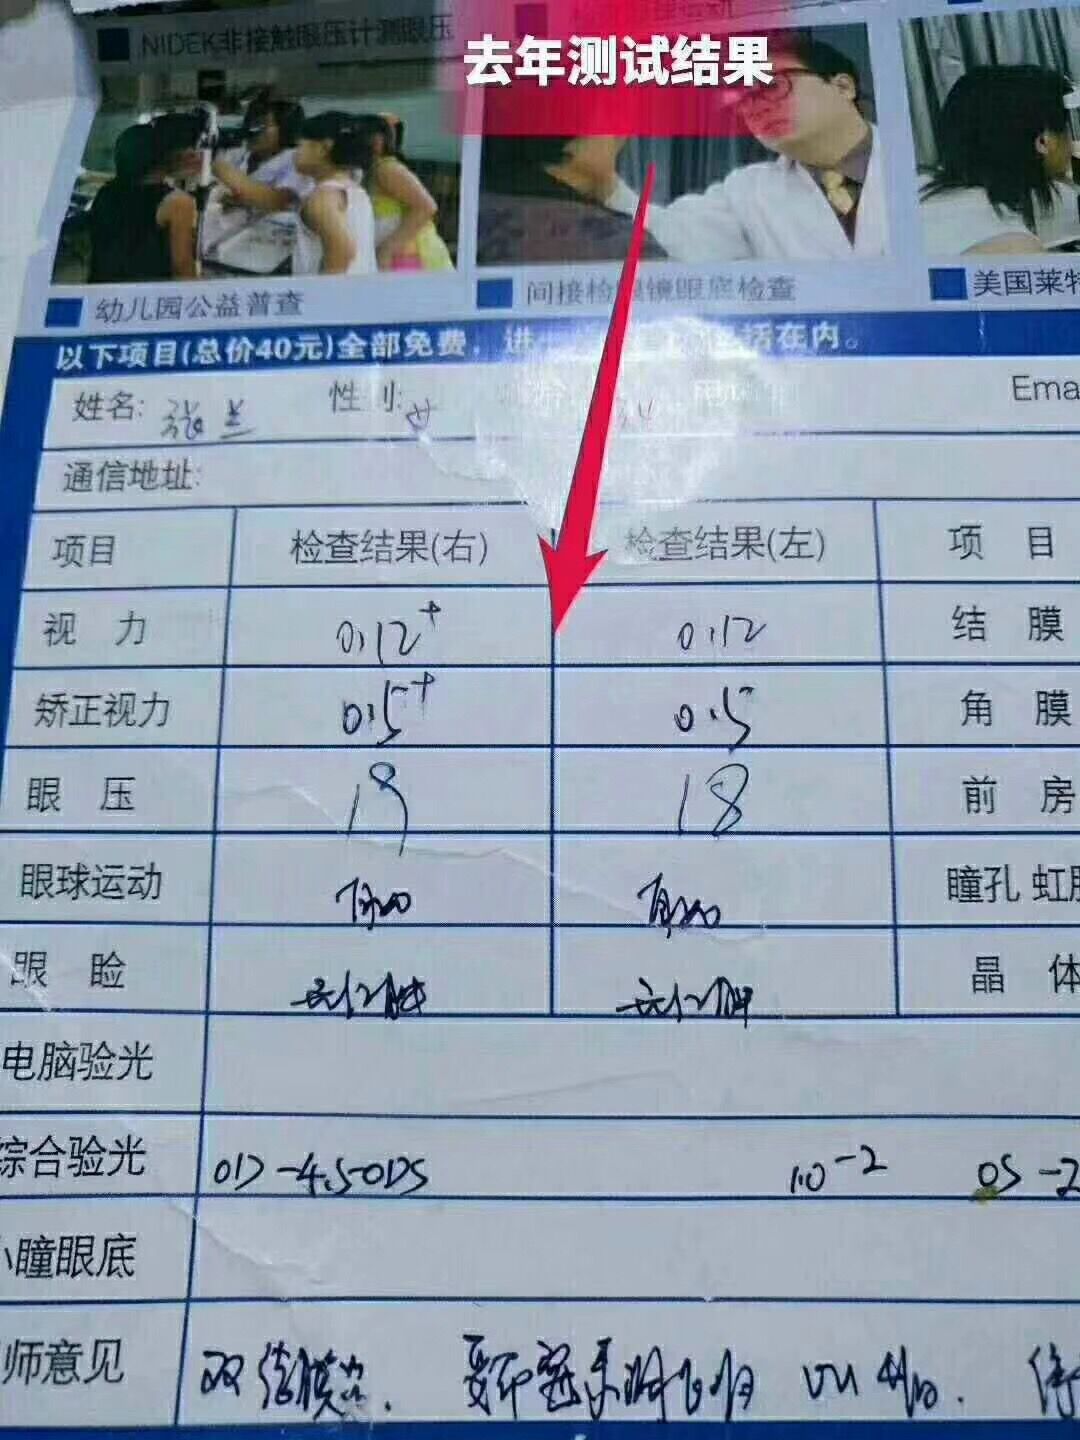 NIDEK非接触眼压计测眼压
去年测试结果
幼儿园公益普查 间接检眼镜眼底检查 美国莱特
以下项目(总价40元)全部免费，进 括在内。
姓名: 张兰 性别: 女 Ema
通信地址:
项目 检查结果(右) 检查结果(左) 项 目
视 力 0.12+ 0.12 结 膜
矫正视力 0.5+ 0.5 角 膜
眼 压 19 18 前 房
眼球运动 自如 自如 瞳孔 虹膜
眼 睑 无红肿 无红肿 晶 体
电脑验光
综合验光 OD -4.50DS 1.0-2 OS -2
小瞳眼底
师意见 双结膜炎.